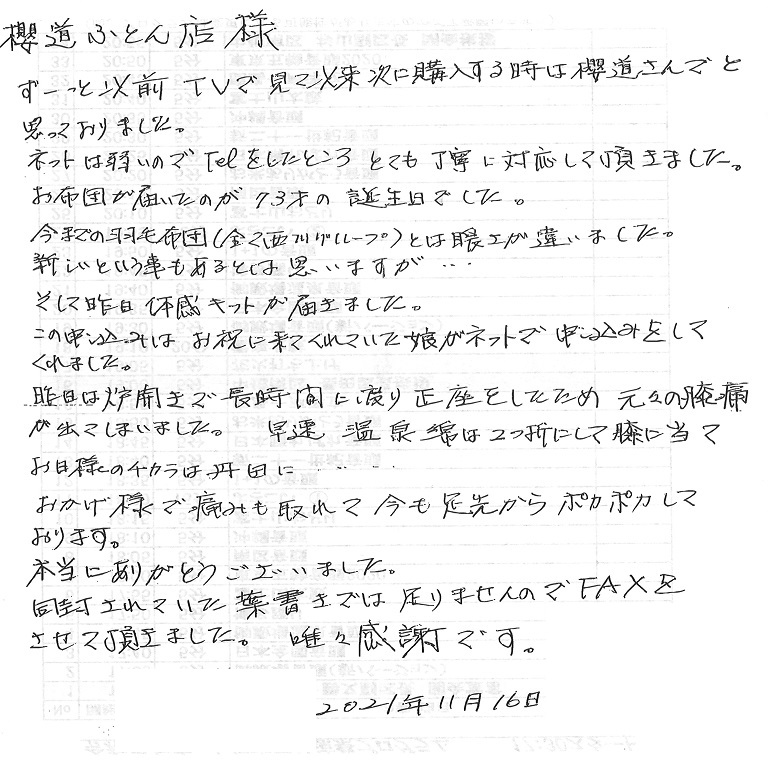 櫻道ふとん店 様
ずーっと以前 TVで見て以来次に購入する時は櫻道さんでと
思っておりました。
ネットは弱いのでTelをしたところ とても 丁寧に対応して頂きました。
お布団が届いたのが 73才の 誕生日でした。
今までの羽毛布団(全て西川グループ)とは暖さが違いました。
新しいという事もあるとは思いますが…
そして昨日 体感キットが届きました。
この申し込みは お祝に来てくれていた娘がネットで申し込みをして
くれました。
昨日は炉開きで長時間に渡り正座をしたため 元々の膝痛
が出てしまいました。 早速 温泉綿は2つ折にして膝に当て
お日様のチカラは丹田に……
おかげ様で痛みも取れて今も足先からポカポカして
おります。
本当にありがとうございました。
同封されていた葉書きでは足りませんのでFAXを
させて頂きました。 唯々感謝です。
2021年11月16日